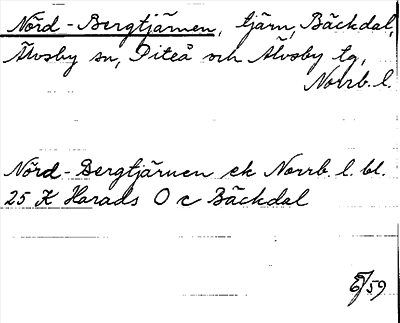 Nörd-Bergtjärnen, tjärn, Bäckdal,
Älvsby sn, Piteå och Älvsby tg,
Norrb. l.
Nörd-Bergtjärnen ek Norrb. l. bl.
25 K Harads O c Bäckdal
/59